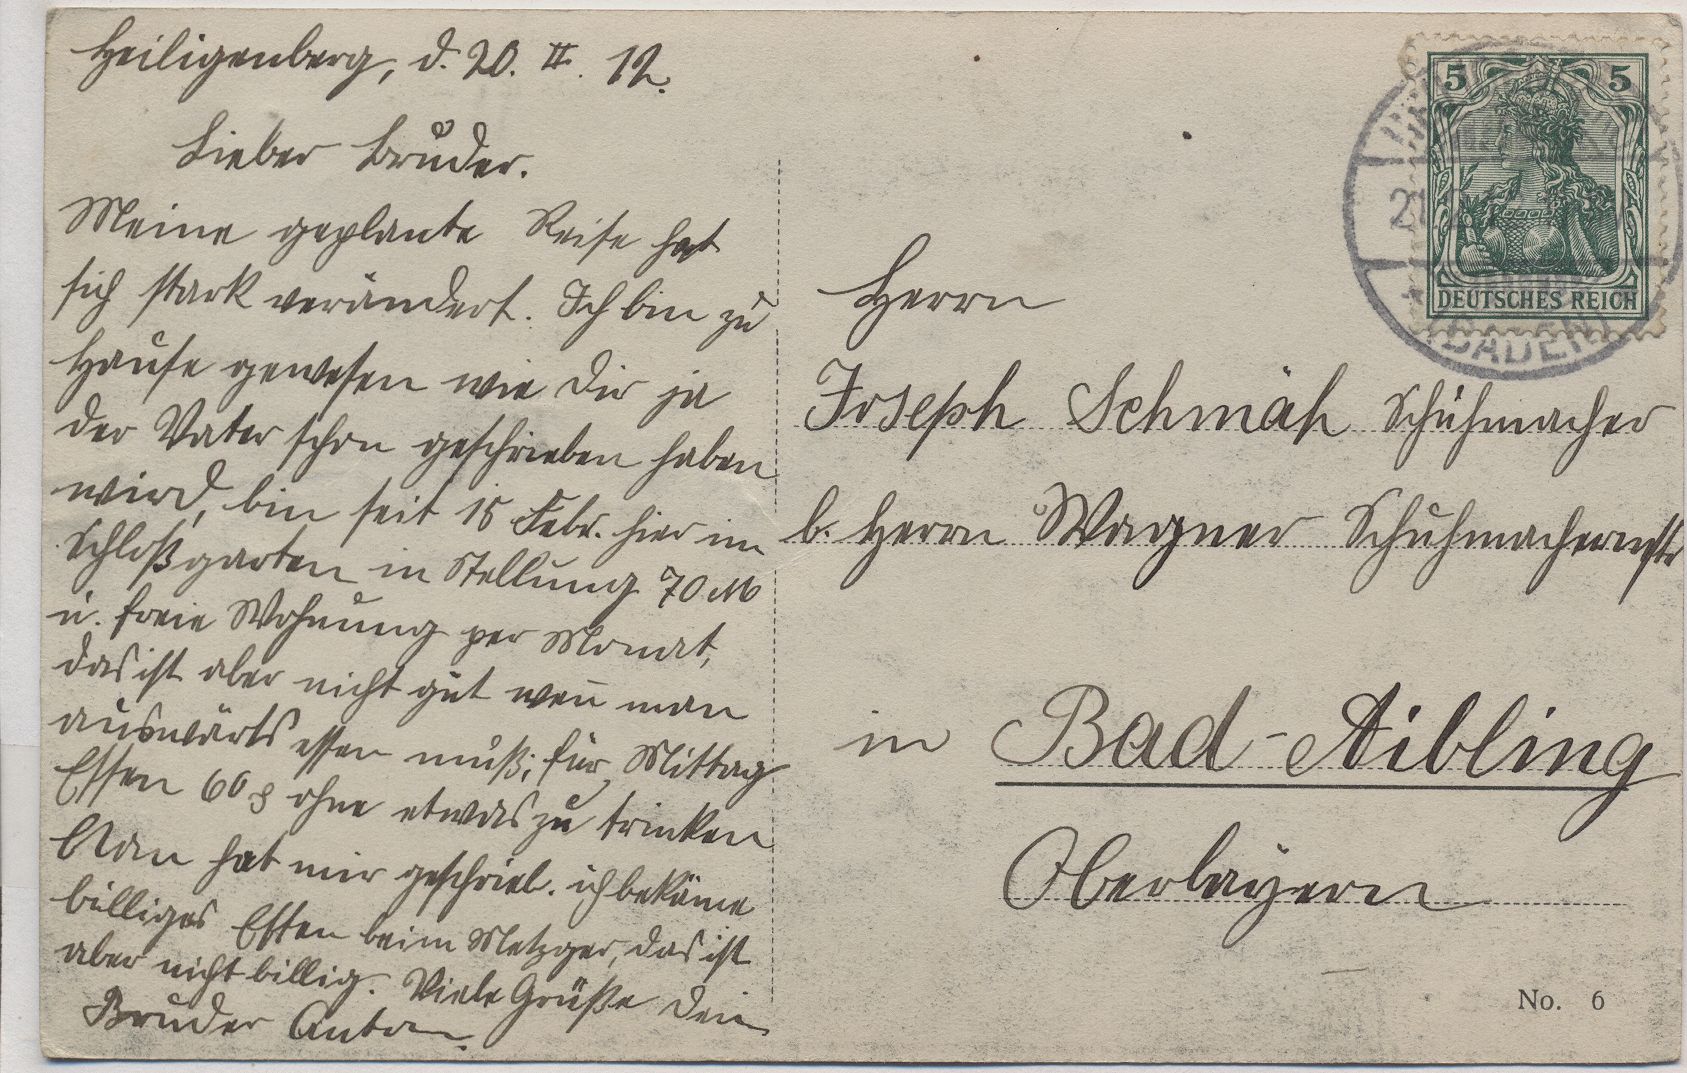 Heiligenberg, d. 20. II. 12.
Lieber Bruder.
Meine geplante Reise hat
sich stark verändert. Ich bin zu
Hause gewesen wie Dir ja
der Vater schon geschrieben haben
wird, bin seit 15 Febr. hier im
Schloßgarten in Stellung 70 M
u. freie Wohnung per Monat,
das ist aber nicht gut wen̄ man
auswärts essen muß; für Mittag
Essen 60 ₰ ohne etwas zu trinken
Man hat mir geschrieb. ich bekäme
billiges Essen beim Metzger, das ist
aber nicht billig. Viele Grüße Dein
Bruder Anton.
5 5
DEUTSCHES REICH
21.
(BADEN)
Herrn
Joseph Schmäh Schuhmacher
b. Herrn Wagner Schuhmachermstr
in Bad-Aibling
Oberbayern
No. 6